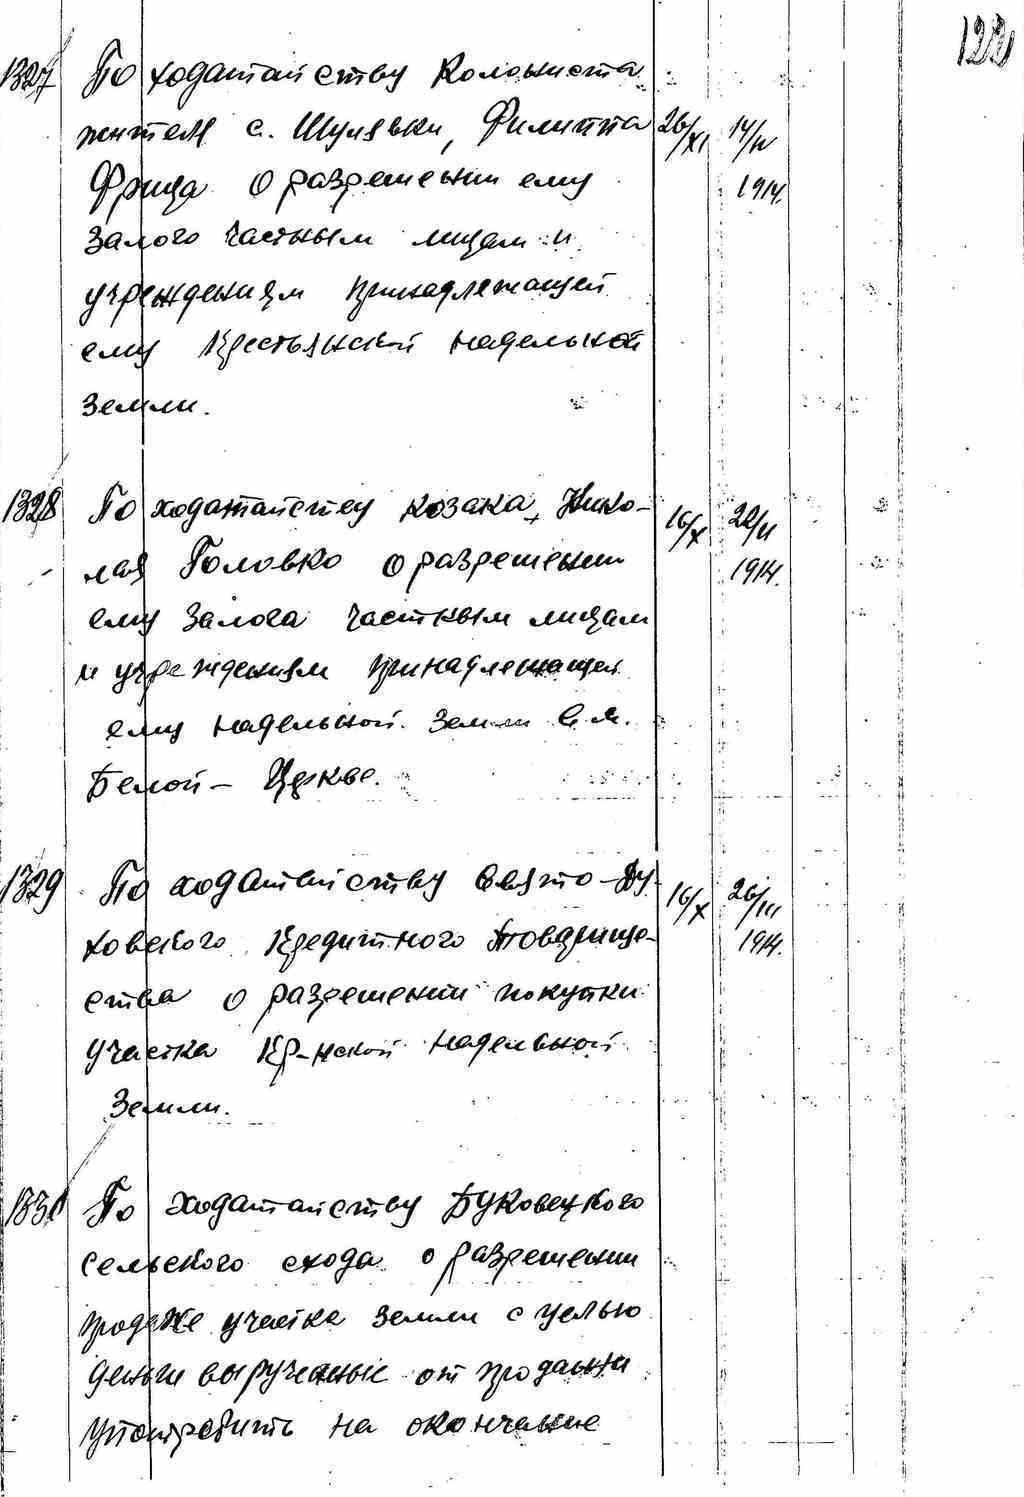 122
1327 По ходатайству Колониста
жителя с. Шулявки, Филиппа 26/XI 14/IV
Фрица о разрешении ему 1914.
залого частным лицам и
учреждениям принадлежащей
ему Крестьянской надельной
земли.
1328 По ходатайству козака Нико- 16/X 22/II
лая Головко о разрешении 1914.
ему залога частным лицам
и учреждениям принадлежащей
ему надельной земли в м.
Белой - Цркве.
1329 По ходатайству Свято-Ду- 16/X 26/III
ховского Кредитного Товарище- 1914.
ства о разрешении покупки
участка Кр-нской надельной
земли.
1330 По ходатайству Буковецкого
сельского схода о разрешении
продаже участка земли с целью
деньги вырученные от продажи
употребить на окончание